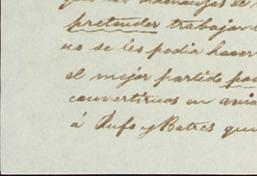 pretender trabajar
no se les podia hacer
el mejor partido
convertirnos en
á Rufo y Batres que